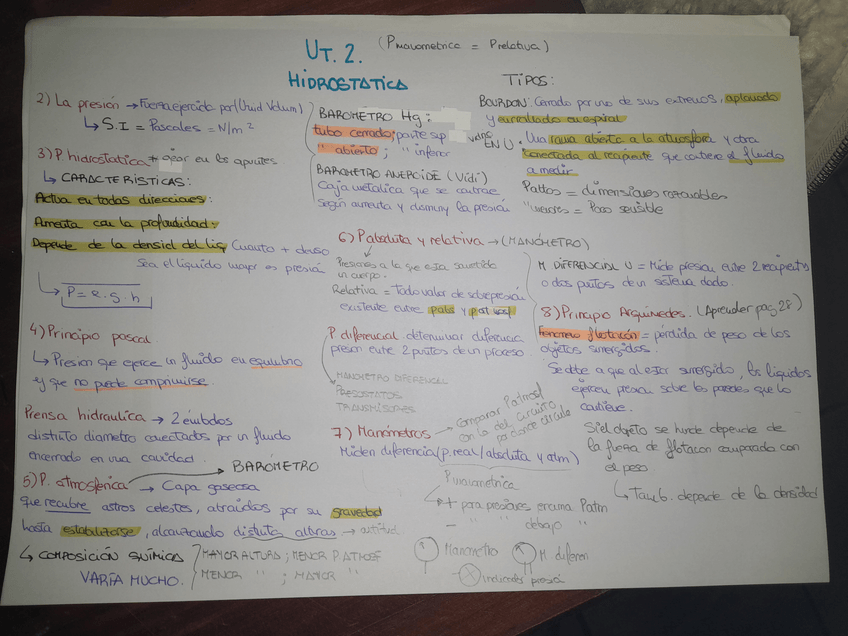 UT. 2.
HIDROSTATICA
(Pmanometrica = Prelativa)
2) La presión → Fuerza ejercida por (Unid Volum)
↳ S.I = Pascales = N/m²
3) P. hidrostatica + en los apuntes
↳ CARACTERÍSTICAS:
Actua en todas direcciones.
Aumenta con la profundidad.
Depende de la densid del liq Cuanto + denso
Sea el liquido mayor es presión
P = e. g. h
4) Principio pascal
↳ Presion que ejerce un fluido en equilibrio
y que no puede comprimirse.
Prensa hidraulica → 2 émbolos
distinto diametro conectados por un fluido
encerrado en una cavidad.
BARÓMETRO
5) P. atmosférica → Capa gaseosa
que recubre astros celestes, atraidos por su gravedad
hasta estabilizarse, alcanzando distinta alturas → actitud
↳ COMPOSICIÓN QUÍMICA
VARÍA MUCHO.
MAYOR ALTURA ; MENOR P ATMOSF
MENOR " ; MAYOR "
BARÓMETRO Hg:
tubo cerrado; parte sup
" abierto; " inferior
BAROMETRO ANEROIDE (Vidi)
Caja metalica que se contrae
según aumenta y disminuy la presión
6) P absoluta y relativa → (MANÓMETRO)
Presiones a la que esta sometido
un cuerpo.
Relativa = Todo valor de sobrepresión
existente entre pabs y patmosf
P diferencial determinar diferencia
presion entre 2 puntos de un proceso.
MANOMETRO DIFERENCIAL
PRESOSTATOS
TRANSMISORES
7) Manómetros → comparar Patmosf
con la del circuito
por donde circula
Miden diferencia (p. real / absoluta y atm)
P manometrica
+ para presiones encima Patm
- " " debajo "
Manometro
M diferen
indicador presió
TIPOS:
BOURDON: Cerrado por uno de sus extremos, aplanado
y enrollado en espiral
EN U: Una rama abierta a la atmosfera y otra
conectada al recipiente que contiene el fluido
a medir
Pattos = dimensiones razonables
" menores = Poco sensible
M DIFERENCIAL U = Mide presion entre 2 recipients
o dos puntos de un sistema dado.
8) Principio Arquimedes. (Aprender pag 28)
Fenomeno flotación = pérdida de peso de los
objetos sumergidos.
Se debe a que al estar sumergido, los liquidos
ejercen presion sobre las paredes que lo
contiene.
Si el objeto se hunde depende de
la fuerza de flotacion comparado con
el peso
↳ Tamb. depende de la densidad